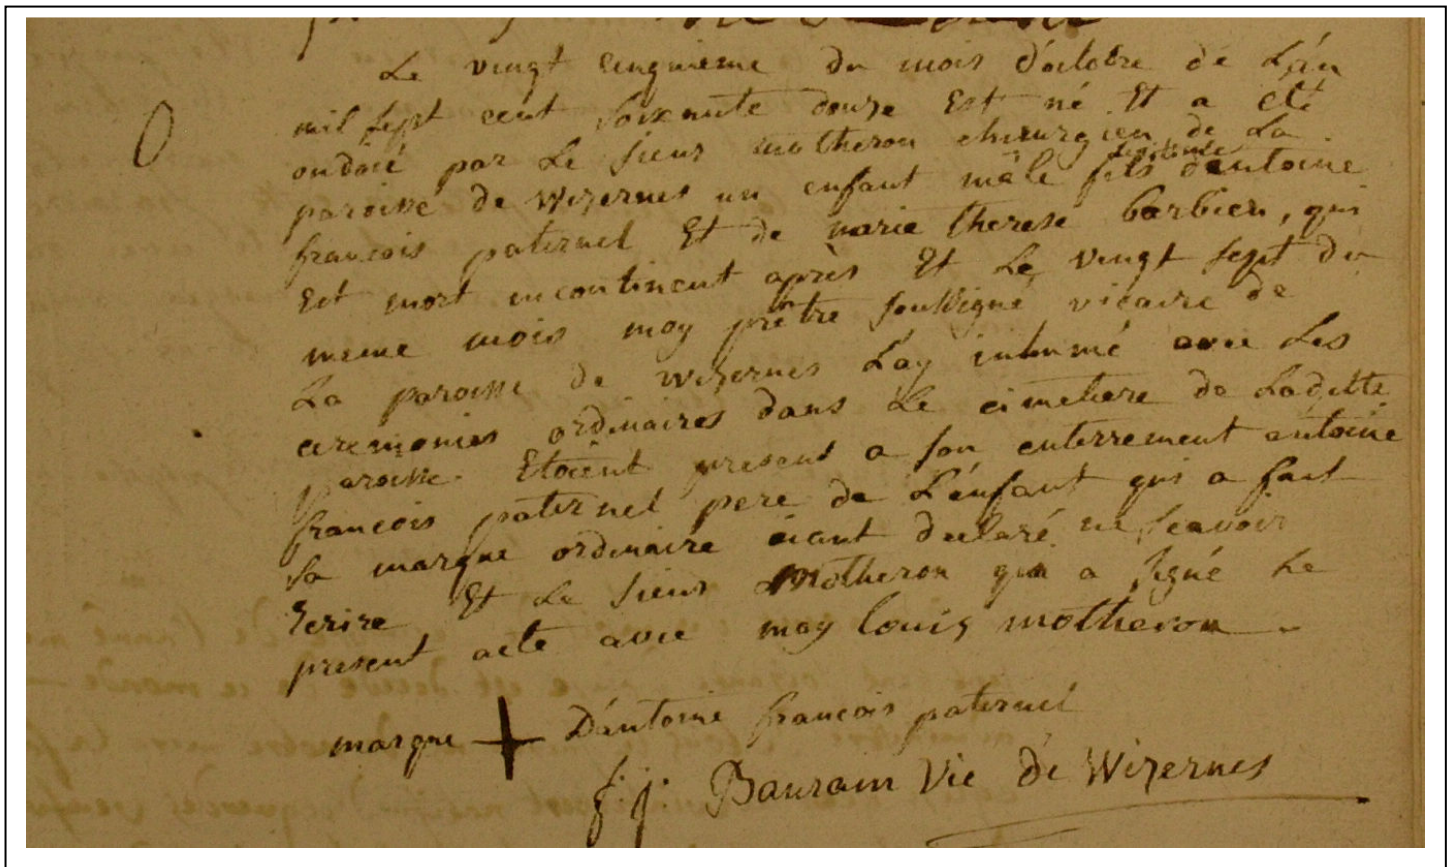 Le vingt cinquieme du mois d'octobre de L'an
mil sept cent soixente douze Est né Et a eté
ondoié par Le sieur motheron chirurgien de La
paroisse de Wizernes un enfant mâle fils legitime d'antoine
francois paternel Et de marie therese barbier, qui
Est mort incontinent après Et Le vingt sept du
meme mois moy prêtre soussigné vicaire de
La paroisse de wizernes Lay inhumé avec Les
ceremonies ordinaires dans Le cimetiere de Laditte
paroisse. Etoient present a son enterrement antoine
francois paternel pere de L'enfant qui a fait
sa marque ordinaire aiant declaré ne scavoir
Ecrire Et Le sieur Motheron qui a signé Le
present acte avec moy Louis motheron
marque D'antoine francois paternel
j. j. Baurain Vic de Wizernes